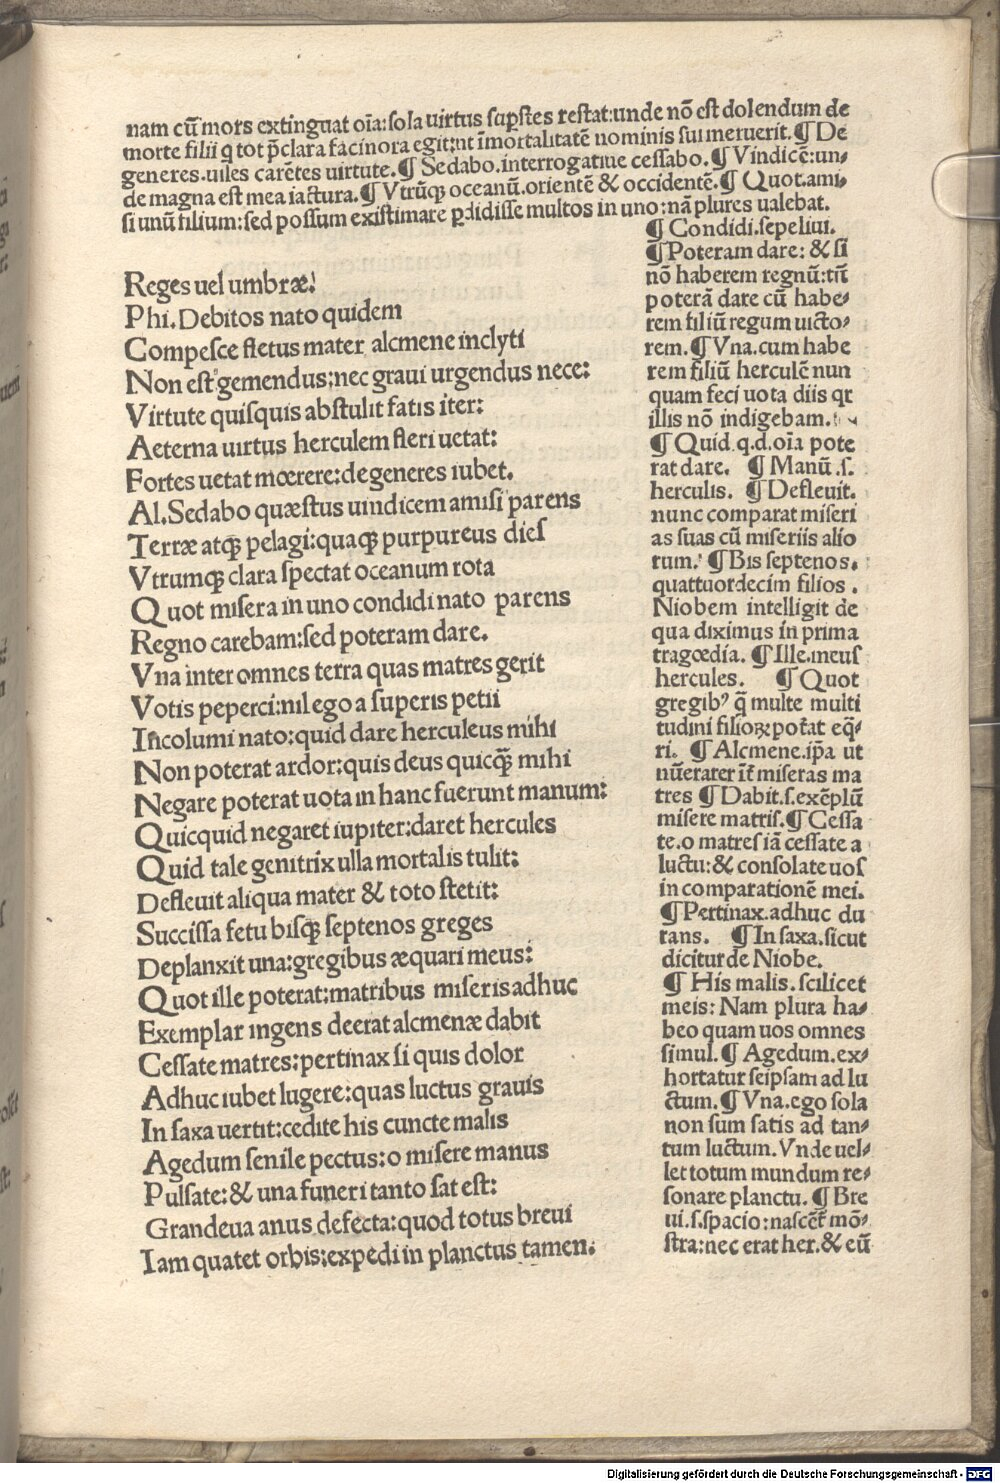 nam cū mors extinguat oīa:sola uirtus sup̱stes restat:unde nō est dolendum de
morte filii q tot p̄clara facinora egit:ut īmortalitatē nominis sui meruerit.¶ De
generes.uiles carētes uirtute.¶ Sedabo.interrogatiue cessabo.¶ Vindicē:un⸗
de magna est mea iactura.¶ Vtrūꝙ oceanū.orientē & occidentē.¶ Quot.ami⸗
si unū filium:sed possum existimare ꝑdidisse multos in uno:nā plures ualebat.
Reges uel umbræ!
Phi.Debitos nato quidem
Compesce fletus mater alcmene inclyti
Non est gemendus:nec graui urgendus nece:
Virtute quisquis abstulit fatis iter:
Aeterna uirtus herculem fleri uetat:
Fortes uetat mœrere:degeneres iubet.
Al.Sedabo quæstus uindicem amisi parens
Terræ atqꝫ pelagi:quaqꝫ purpureus dies
Vtrumqꝫ clara spectat oceanum rota
Quot misera in uno condidi nato parens
Regno carebam:sed poteram dare.
Vna inter omnes terra quas matres gerit
Votis peperci:nil ego a superis petii
Incolumi nato:quid dare herculeus mihi
Non poterat ardor:quis deus quicqꝫ mihi
Negare poterat uota in hanc fuerunt manum:
Quicquid negaret iupiter:daret hercules
Quid tale genitrix ulla mortalis tulit:
Defleuit aliqua mater & toto stetit:
Succissa fetu bisqꝫ septenos greges
Deplanxit una:gregibus æquari meus:
Quot ille poterat:matribus miseris adhuc
Exemplar ingens deerat alcmenæ dabit
Cessate matres:pertinax si quis dolor
Adhuc iubet lugere:quas luctus grauis
In saxa uertit:cedite his cuncte malis
Agedum senile pectus:o misere manus
Pulsate:& una funeri tanto sat est:
Grandeua anus defecta:quod totus breui
Iam quatet orbis:expedi in planctus tamen.
¶ Condidi.sepeliui.
¶Poteram dare: & si
nō haberem regnū:tn̄
poterā dare cū habe⸗
rem filiū regum uicto⸗
rem.¶ Vna.cum habe
rem filiū herculē nun
quam feci uota diis qr
illis nō indigebam.
¶ Quid q.d.oīa pote
rat dare. ¶ Manū .s.
herculis. ¶ Defleuit.
nunc comparat miseri
as suas cū miseriis alio
rum. ¶ Bis septenos.
quattuordecim filios .
Niobem intelligit de
qua diximus in prima
tragœdia. ¶ Ille.meus
hercules. ¶ Quot
gregibꝰ q̄ multe multi
tudini filioꝝ poṫat eq̄⸗
ri. ¶ Alcmene.ip̄a ut
nūerarer īt̄ miseras ma
tres ¶ Dabit.s.exēplū
misere matris.¶ Cessa
te.o matres iā cessate a
luctu:& consolate uos
in comparationē mei.
¶Pertinax.adhuc du
rans. ¶ In saxa.sicut
dicitur de Niobe.
¶ His malis. scilicet
meis: Nam plura ha⸗
beo quam uos omnes
simul.¶ Agedum.ex⸗
hortatur seipsam ad lu
ctum.¶ Vna.ego sola
non sum satis ad tan⸗
tum luctum.Vnde uel⸗
let totum mundum re⸗
sonare planctu. ¶ Bre
ui.s.spacio:nascēt̄ mō⸗
stra:nec erat her.& eū
Digitalisierung gefördert durch die Deutsche Forschungsgemeinschaft - DFG